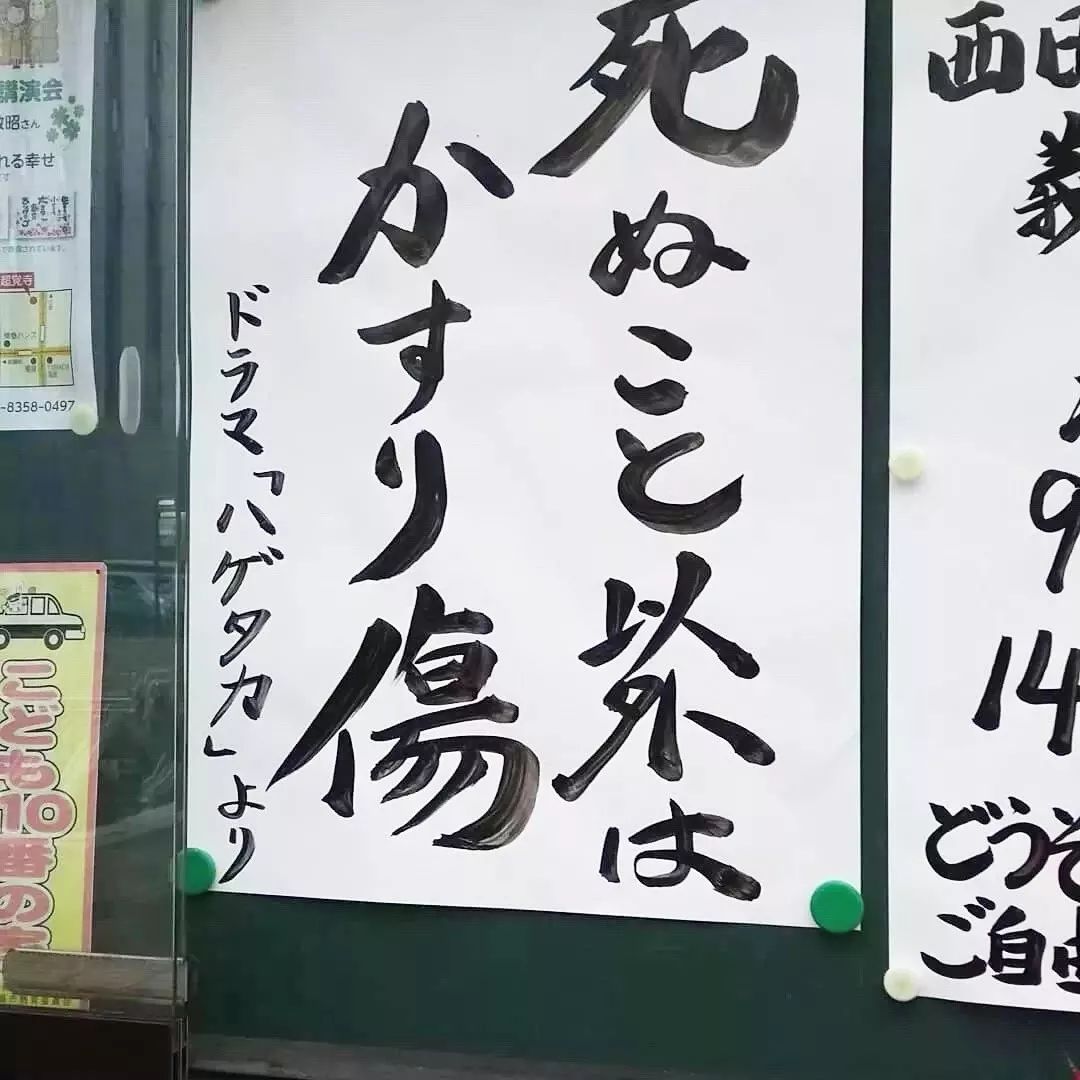 死ぬこと以外は
かすり傷
ドラマ「ハゲタカ」より
西田
義
9
14
どうぞ
ご自由
講演会
昭さん
れる幸せ
超覚寺
-8358-0497
こども110番の